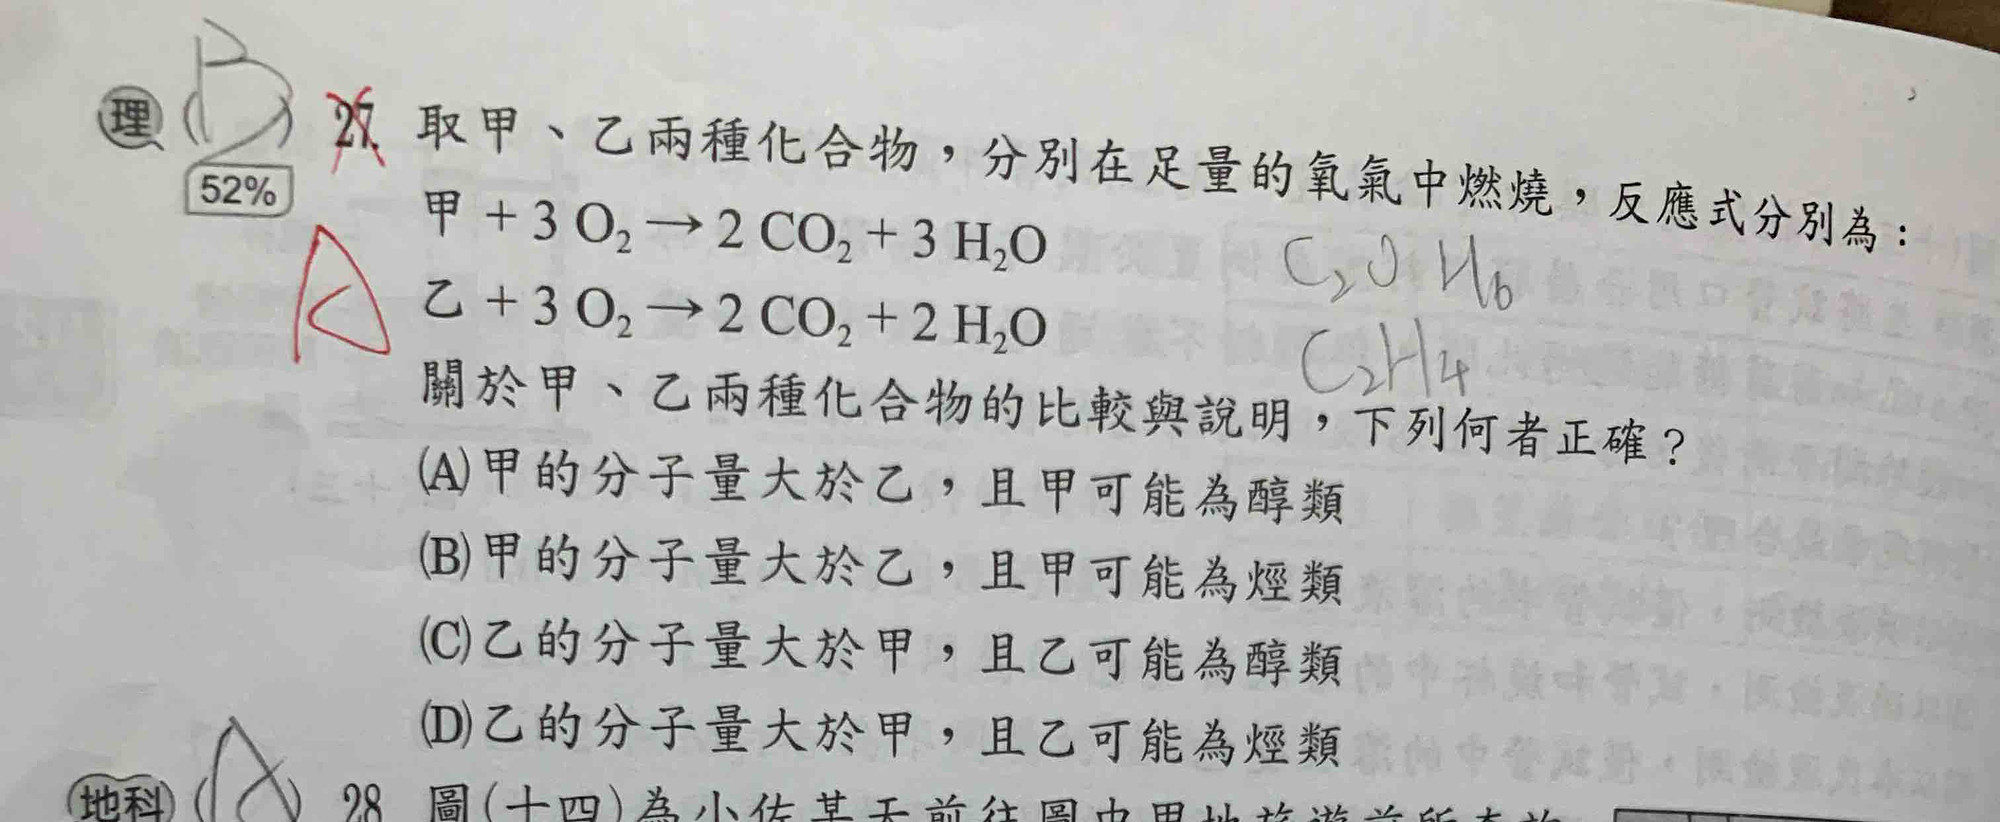 理 (B) 27. 取甲、乙兩種化合物，分別在足量的氧氣中燃燒，反應式分別為：
52%
甲 + 3 O₂ → 2 CO₂ + 3 H₂O C₂OH₆
A
乙 + 3 O₂ → 2 CO₂ + 2 H₂O C₂H₄
關於甲、乙兩種化合物的比較與說明，下列何者正確？
(A)甲的分子量大於乙，且甲可能為醇類
(B)甲的分子量大於乙，且甲可能為烴類
(C)乙的分子量大於甲，且乙可能為醇類
(D)乙的分子量大於甲，且乙可能為烴類
地科 (A) 28 圖(十四)為小佐某天前往圖中甲地旅遊前所查的